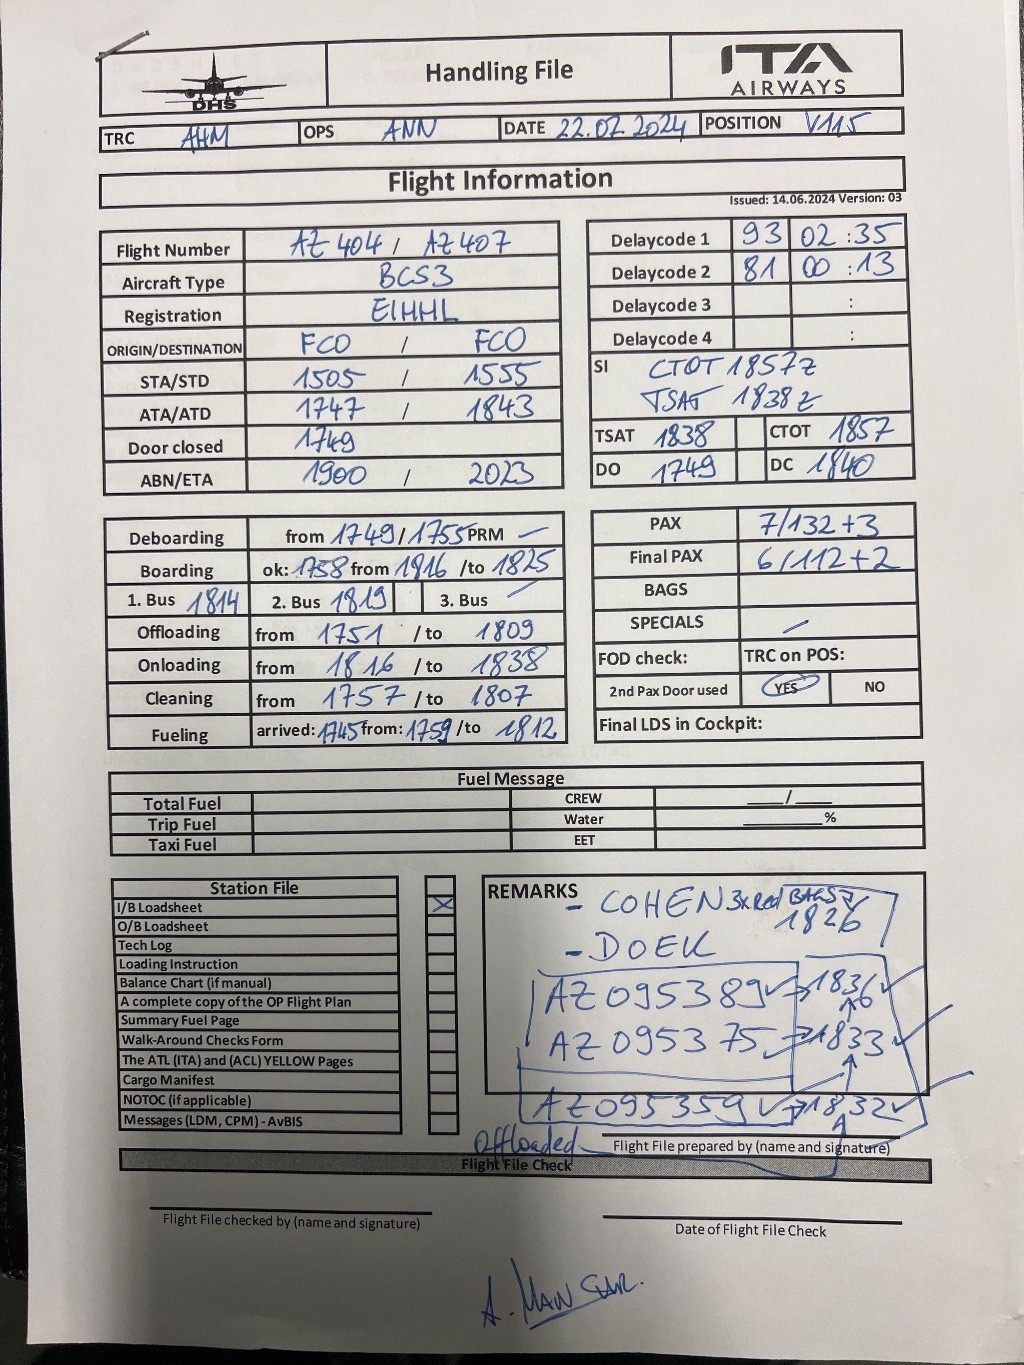 DHS
Handling File
ITA
AIRWAYS
TRC AHM OPS ANN DATE 22.07.2024 POSITION V115
Flight Information
Issued: 14.06.2024 Version: 03
Flight Number AZ 404 / AZ 407
Aircraft Type BCS3
Registration EIHHL
ORIGIN/DESTINATION FCO / FCO
STA/STD 1505 / 1555
ATA/ATD 1747 / 1843
Door closed 1749
ABN/ETA 1900 / 2023
Delaycode 1 93 02 :35
Delaycode 2 81 00 :13
Delaycode 3 :
Delaycode 4 :
SI CTOT 1857z
TSAT 1838z
TSAT 1838 CTOT 1857
DO 1749 DC 1840
Deboarding from 1749/1755 PRM –
Boarding ok: 1758 from 1816 /to 1825
1. Bus 1814 2. Bus 1819 3. Bus –
Offloading from 1751 /to 1809
Onloading from 1816 /to 1838
Cleaning from 1757 /to 1807
Fueling arrived: 1745 from: 1759 /to 1812
PAX 7/132+3
Final PAX 6/112+2
BAGS
SPECIALS –
FOD check: TRC on POS:
2nd Pax Door used YES NO
Final LDS in Cockpit:
Fuel Message
Total Fuel CREW ___/___
Trip Fuel Water ______%
Taxi Fuel EET
Station File
I/B Loadsheet X
O/B Loadsheet
Tech Log
Loading Instruction
Balance Chart (if manual)
A complete copy of the OP Flight Plan
Summary Fuel Page
Walk-Around Checks Form
The ATL (ITA) and (ACL) YELLOW Pages
Cargo Manifest
NOTOC (if applicable)
Messages (LDM, CPM) - AvBIS
REMARKS
- COHEN 3xRed BAGS
1826
- DOEK
AZ 095389 ✓ → 1836 ✓
AZ 095375 → 1833 ✓
AZ 095359 ✓ → 1832 ✓
Offloaded
Flight File prepared by (name and signature)
Flight File Check
Flight File checked by (name and signature)
Date of Flight File Check
A. Mansar.